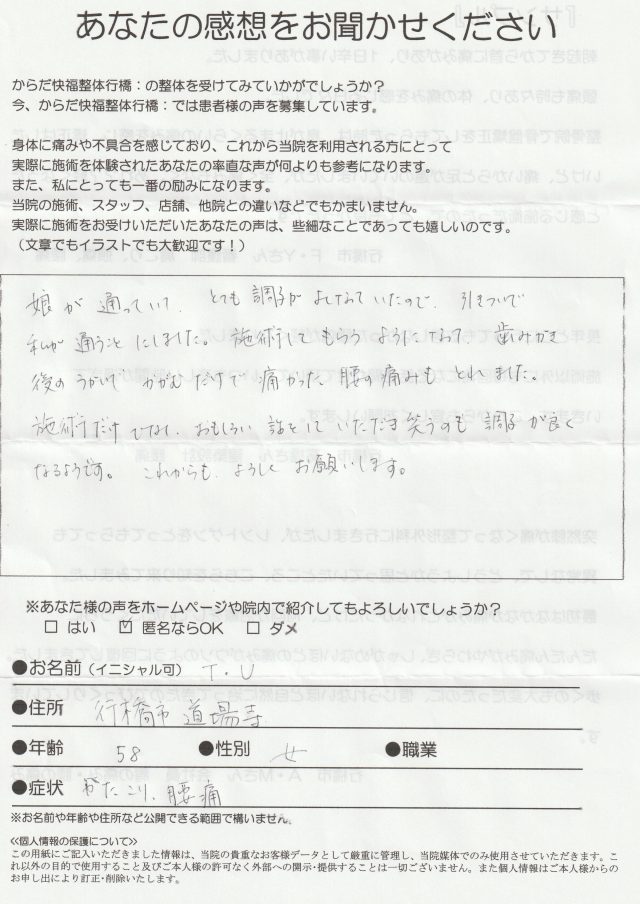 あなたの感想をお聞かせください
からだ快福整体行橋：の整体を受けてみていかがでしょうか？
今、からだ快福整体行橋：では患者様の声を募集しています。
身体に痛みや不具合を感じており、これから当院を利用される方にとって
実際に施術を体験されたあなたの率直な声が何よりも参考になります。
また、私にとっても一番の励みになります。
当院の施術、スタッフ、店舗、他院との違いなどでもかまいません。
実際に施術をお受けいただいたあなたの声は、些細なことであっても嬉しいのです。
（文章でもイラストでも大歓迎です！）
娘が通っていて、とても調子がよくなっていたので、引きついで
私が通うことにしました。施術してもらうようになって、歯みがき
後のうがいで かがむだけで痛かった腰の痛みも とれました。
施術だけでなく、おもしろい話をしていただき笑うのも調子が良く
なるようです。これからも、よろしくお願いします。
※あなた様の声をホームページや院内で紹介してもよろしいでしょうか？
□ はい ☑ 匿名ならOK □ ダメ
●お名前（イニシャル可） T・U
●住所 行橋市 道場寺
●年齢 58 ●性別 女 ●職業
●症状 かたこり、腰痛
※お名前や年齢や住所など公開できる範囲で構いません。
≪個人情報の保護について≫
この用紙にご記入いただきました情報は、当院の貴重なお客様データとして厳重に管理し、当院媒体でのみ使用させていただきます。こ
れ以外の目的で使用すること及びご本人様の許可なく外部への開示・提供することは一切ございません。また個人情報はご本人様からの
お申し出により訂正・削除いたします。